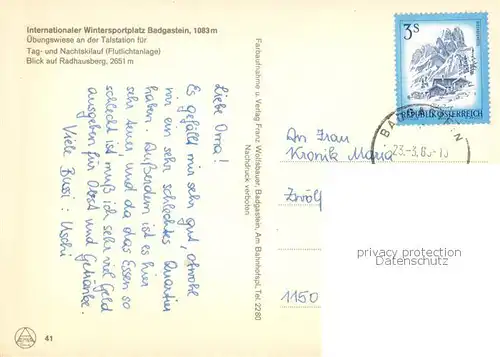 Internationaler Wintersportplatz Badgastein, 1083 m
Übungswiese an der Talstation für
Tag- und Nachtskilauf (Flutlichtanlage)
Blick auf Radhausberg, 2651 m
Liebe Oma!
Es gefällt mir sehr gut, obwohl
wir ein sehr schlechtes Quartier
haben. Außerdem ist es hier
sehr teuer, und da das Essen so
schlecht ist muß ich sehr viel Geld
ausgeben für Obst und Getränke.
Viele Bussi: Uschi
41
Farbaufnahme u. Verlag Franz Wolfsbauer, Badgastein, Am Bahnhofspl., Tel. 22 80
Nachdruck verboten
3 S
REPUBLIK ÖSTERREICH
An Frau
Kronik Maria
Zwölf
1150
privacy protection
Datenschutz